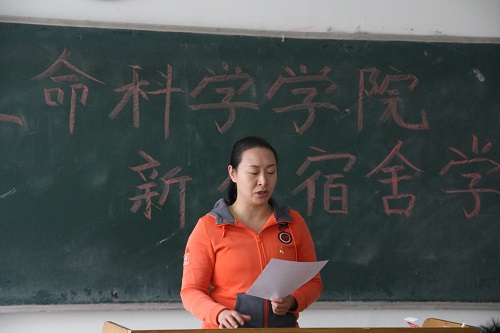 命科学学院
新 宿舍学